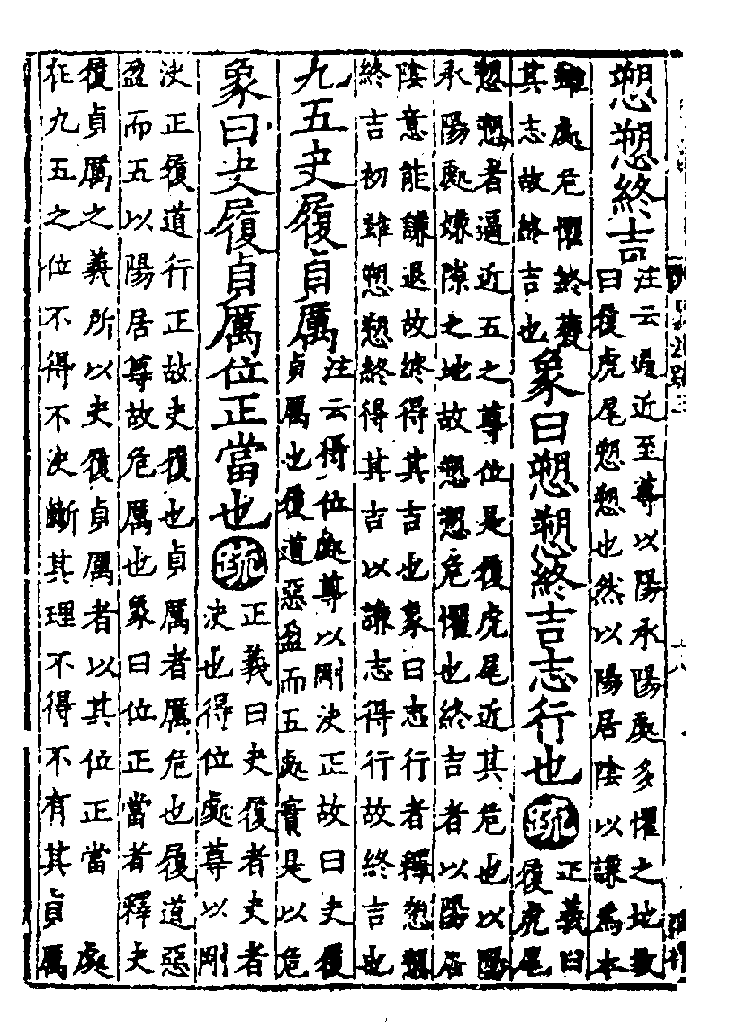 愬愬終吉
注云逼近至尊以陽承陽處多懼之地故
曰履虎尾愬愬也然以陽居陰以謙為本
雖處危懼終獲
其志故終吉也
象曰愬愬終吉志行也疏
正義曰
履虎尾
愬愬者逼近五之尊位是履虎尾近其危也以陽
承陽處嫌隙之地故愬愬危懼也終吉者以陽居
陰意能謙退故終得其吉也象曰志行者釋愬愬
終吉初雖愬愬終得其吉以謙志得行故終吉也
九五夬履貞厲
注云得位處尊以剛決正故曰夬履
貞厲也履道惡盈而五處實是以危
象曰夬履貞厲位正當也疏
正義曰夬履者夬者
決也得位處尊以剛
決正履道行正故夬履也貞厲者厲危也履道惡
盈而五以陽居尊故危厲也象曰位正當者釋夬
履貞厲之義所以夬履貞厲者以其位正當處
在九五之位不得不決斷其理不得不有其貞厲